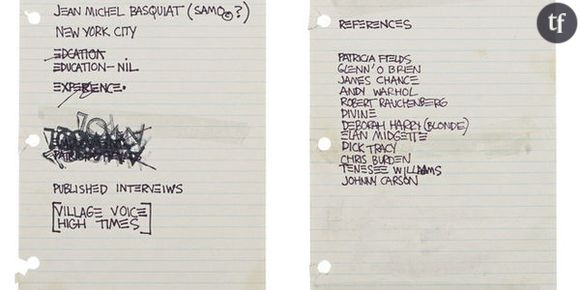 JEAN MICHEL BASQUIAT (SAMO©?)
NEW YORK CITY
EDCATION
EDUCATION-NIL
EXPERIENCE.
PUBLISHED INTERVEIWS
[VILLAGE VOICE
HIGH TIMES]
tf
REFERENCES
PATRICIA FIELDS
GLENN'O BRIEN
JAMES CHANCE
ANDY WARHOL
ROBERT RAUCHENBERG
DIVINE
DEBORAH HARRY (BLONDE)
ELAN MIDGETTE
DICK TRACY
CHRIS BURDEN
TENESEE WILLIAMS
JOHNNY CARSON